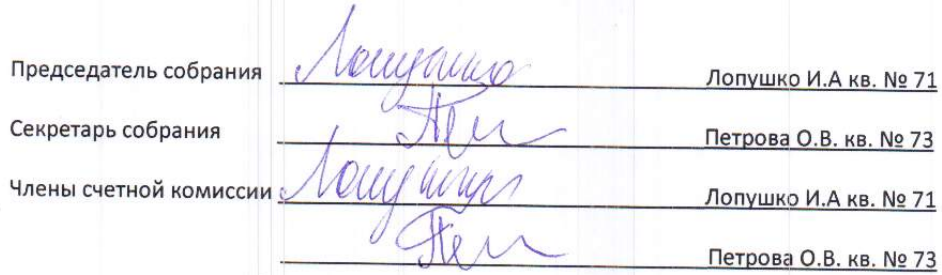 Председатель собрания Лопушко Лопушко И.А кв. № 71
Секретарь собрания Петрова О.В. кв. № 73
Члены счетной комиссии Лопушко Лопушко И.А кв. № 71
Петрова О.В. кв. № 73